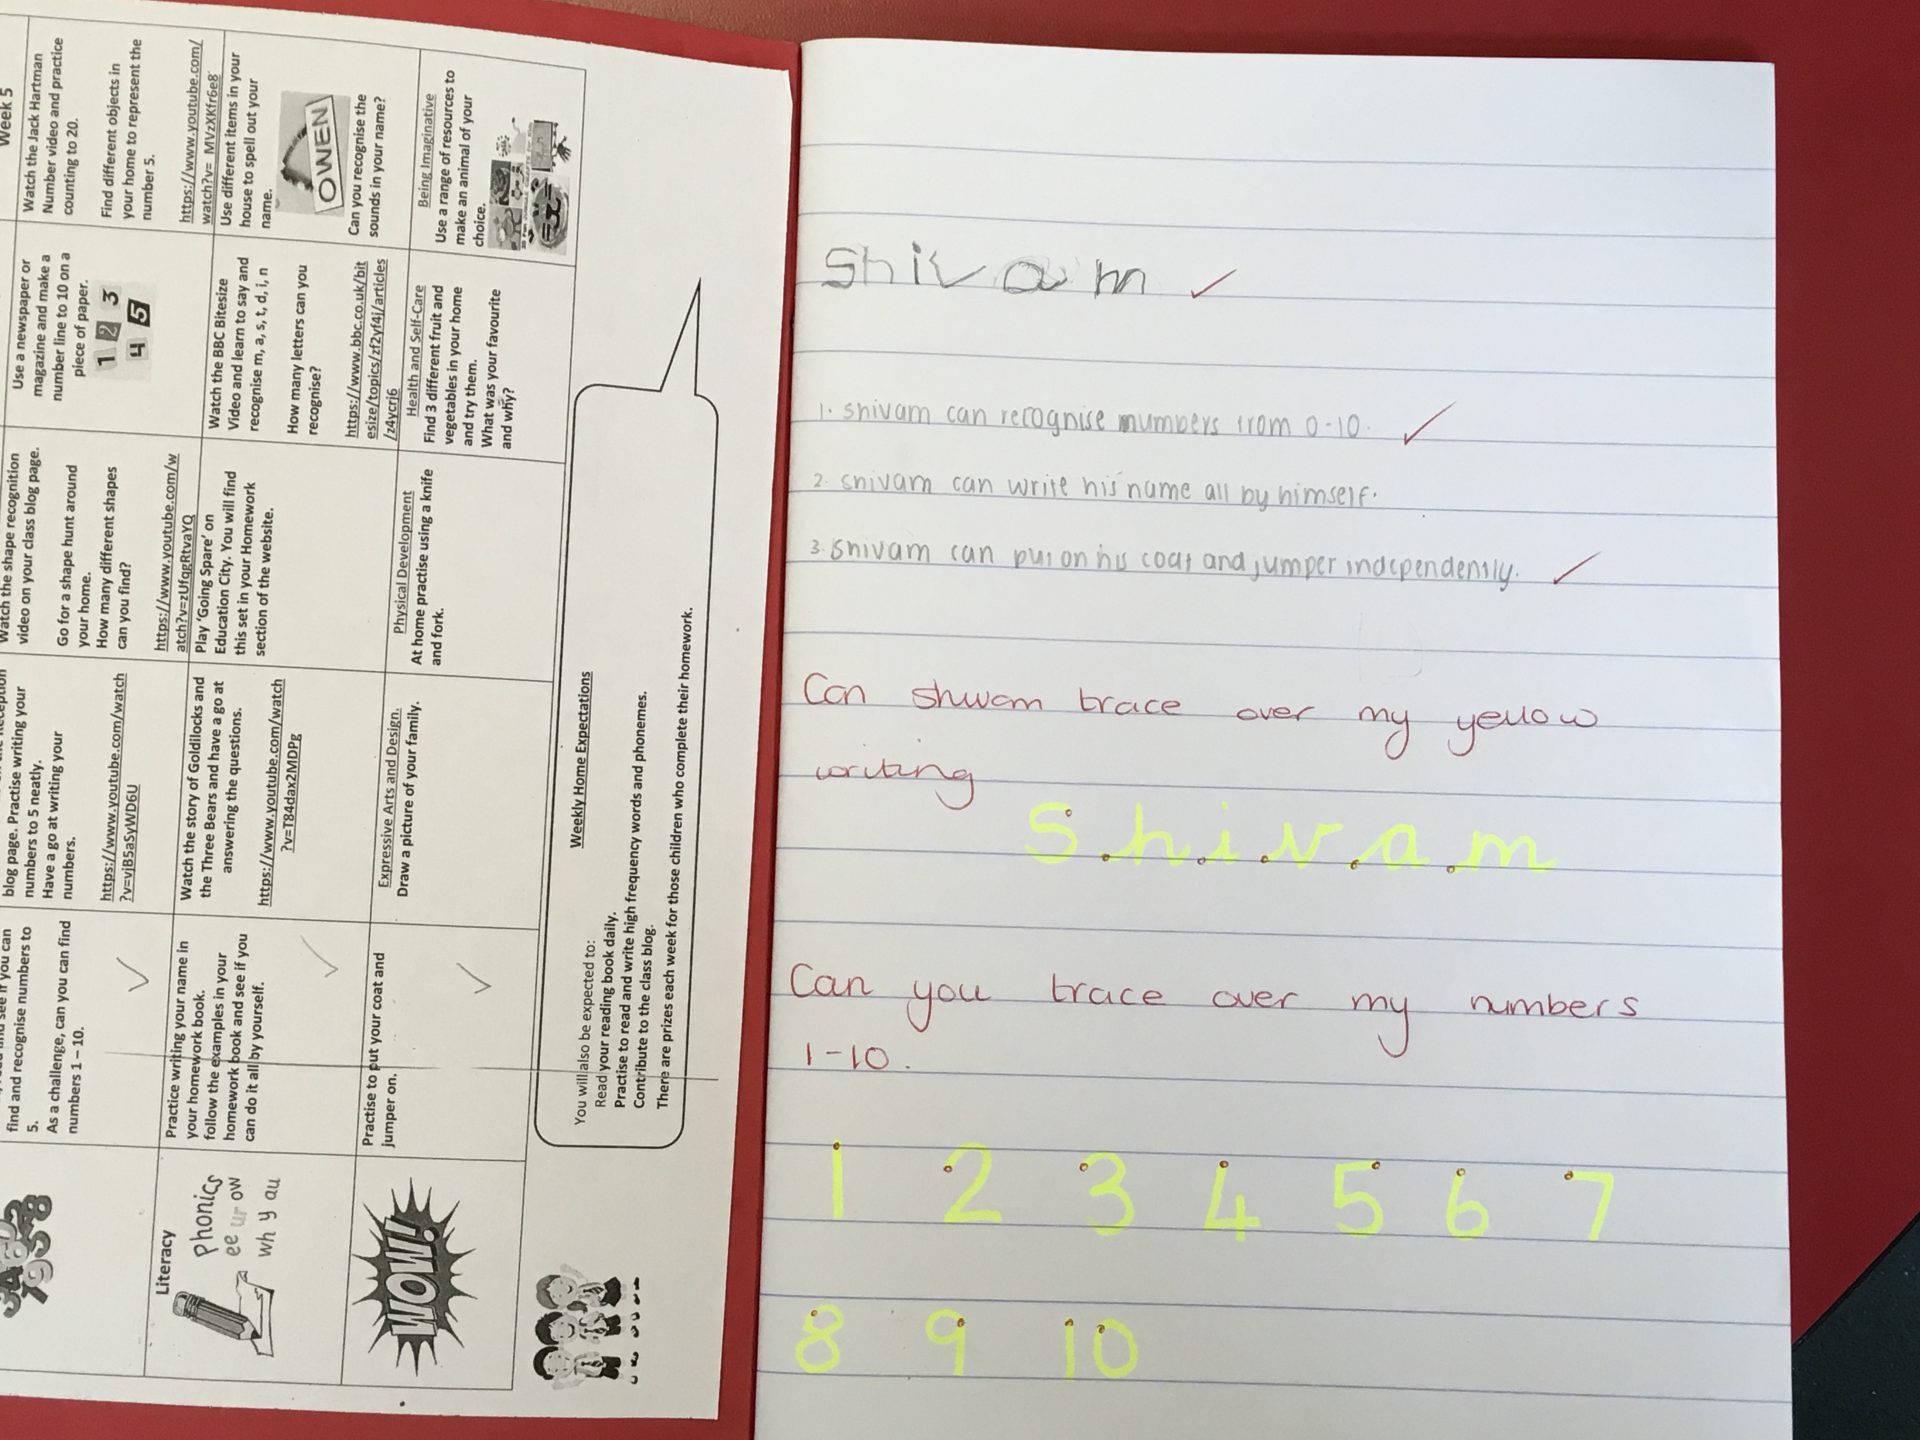 Week 5
Watch the Jack Hartman
Number video and practice
counting to 20.
Find different objects in
your home to represent the
number 5.
https://www.youtube.com/
watch?v=_MVzXKfr6e8
Use different items in your
house to spell out your
name.
OWEN
Can you recognise the
sounds in your name?
Being Imaginative
Use a range of resources to
make an animal of your
choice.
Use a newspaper or
magazine and make a
number line to 10 on a
piece of paper.
1 2 3
4 5
Watch the BBC Bitesize
Video and learn to say and
recognise m, a, s, t, d, i, n
How many letters can you
recognise?
https://www.bbc.co.uk/bit
esize/topics/zf2yf4j/articles
/z4ycrj6
Health and Self-Care
Find 3 different fruit and
vegetables in your home
and try them.
What was your favourite
and why?
Watch the shape recognition
video on your class blog page.
Go for a shape hunt around
your home.
How many different shapes
can you find?
https://www.youtube.com/w
atch?v=zUfqgRtvaYQ
Play ‘Going Spare’ on
Education City. You will find
this set in your Homework
section of the website.
Physical Development
At home practise using a knife
and fork.
blog page. Practise writing your
numbers to 5 neatly.
Have a go at writing your
numbers.
https://www.youtube.com/watch
?v=vjB5aSyWD6U
Watch the story of Goldilocks and
the Three Bears and have a go at
answering the questions.
https://www.youtube.com/watch
?v=T84dax2MDPg
Expressive Arts and Design.
Draw a picture of your family.
see if you can
find and recognise numbers to
5.
As a challenge, can you can find
numbers 1 – 10.
Practice writing your name in
your homework book.
follow the examples in your
homework book and see if you
can do it all by yourself.
Practise to put your coat and
jumper on.
Literacy
Phonics
ee ur ow
wh y au
WOW!
Weekly Home Expectations
You will also be expected to:
Read your reading book daily.
Practise to read and write high frequency words and phonemes.
Contribute to the class blog.
There are prizes each week for those children who complete their homework.
Shivam
1. shivam can recognise numbers from 0-10.
2. shivam can write his name all by himself.
3. shivam can put on his coat and jumper independently.
Can shivam trace over my yellow
writing
Shivam
Can you trace over my numbers
1-10.
1 2 3 4 5 6 7
8 9 10